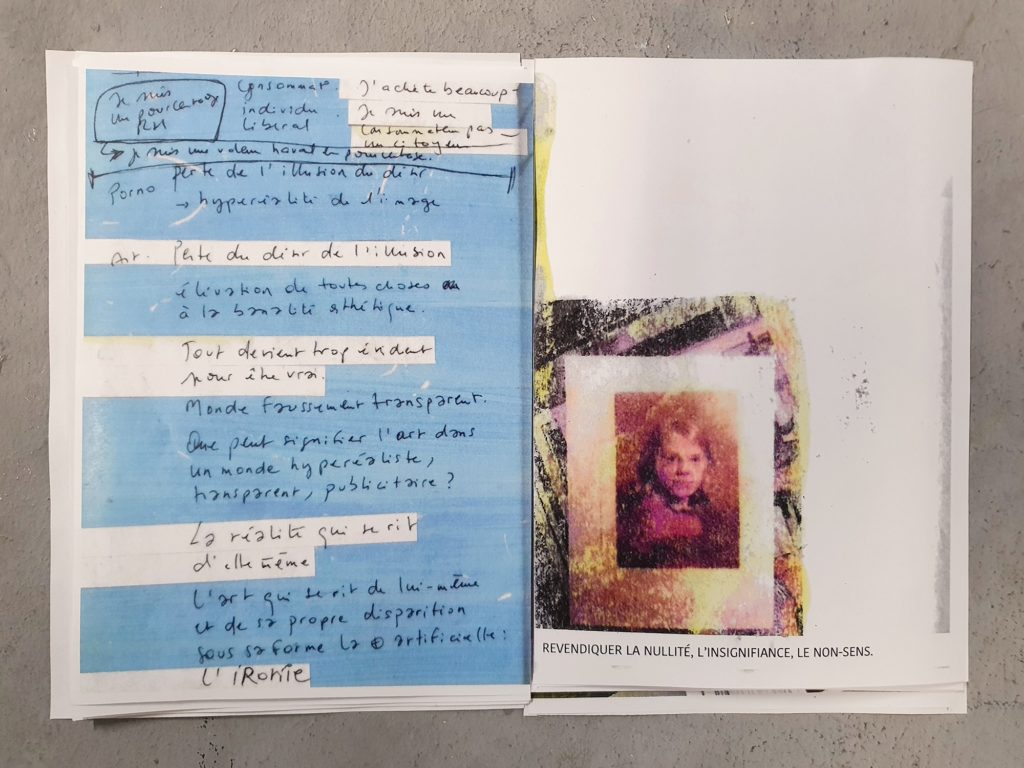 Je suis
un pourcentage
RH
Consommat.
individu
Liberal
J'achète beaucoup
Je suis un
consommateur pas
un citoyen
↳ je suis une valeur en pourcentage.
Porno Perte de l'illusion du désir
→ hyperéalité de l'image
Art. Perte du désir de l'illusion
élévation de toutes choses
à la banalité esthétique.
Tout devient trop évident
pour être vrai.
Monde faussement transparent.
Que peut signifier l'art dans
un monde hyperéaliste,
transparent, publicitaire ?
La réalité qui se rit
d'elle même
L'art qui se rit de lui-même
et de sa propre disparition
sous sa forme la ⊕ artificielle :
L'IRONIE
REVENDIQUER LA NULLITÉ, L'INSIGNIFIANCE, LE NON-SENS.